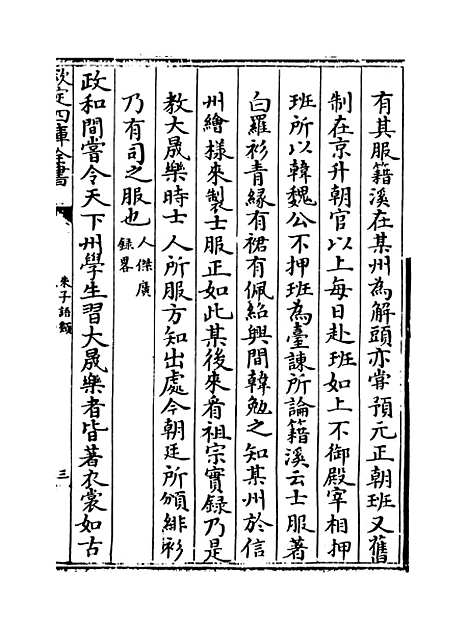 有其服籍溪在某州為解頭亦嘗預元正朝班又舊
制在京升朝官以上每日赴班如上不御殿宰相押
班所以韓魏公不押班為臺諫所論籍溪云士服著
白羅衫青緣有裙有佩紹興間韓勉之知某州於信
州繪様來製士服正如此某後來看祖宗實録乃是
教大晟樂時士人所服方知出處今朝廷所頒緋衫
乃有司之服也人傑廣録畧
政和間嘗令天下州學生習大晟樂者皆著衣裳如古
欽定四庫全書
朱子語類
三